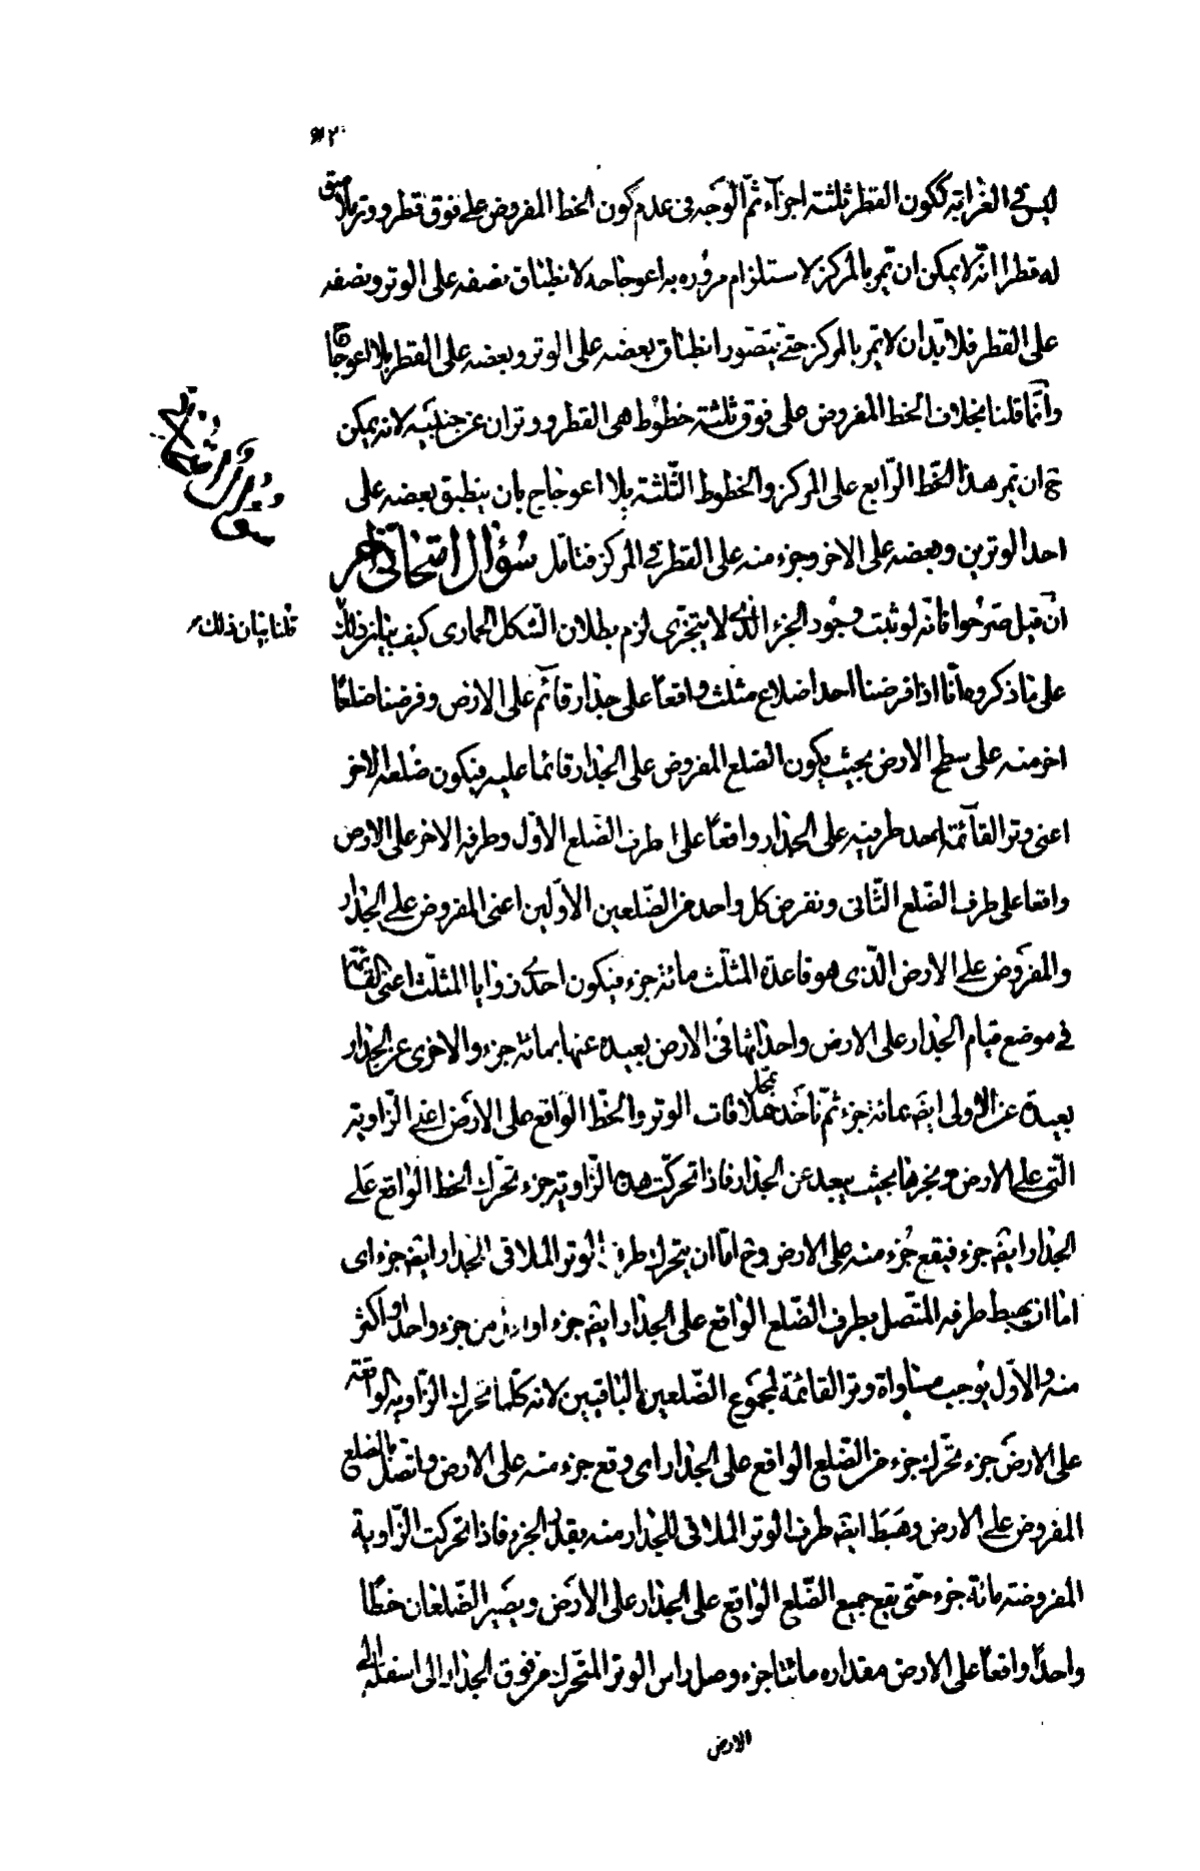 ليس فى الغرابة ككون القطر ثلثة اجزاء ثم الوجه فى عدم كون الخط المفروض على فوق قطر ووتر ملاصق
له قطرا انه لا يمكن ان تمر بالمركز لاستلزام مروره به اعوجاجه لانطباق نصفه على الوتر ونصفه
على القطر فلا بد ان لا تمر بالمركز حتى يتصور انطباق بعضه على الوتر وبعضه على القطر بلا اعوجاج
وانما قلنا بخلاف الخط المفروض على فوق ثلثة خطوط هى القطر ووتران عن جنبيه لانه يمكن
ح ان تمر هذا الخط الرابع على المركز والخطوط الثلثة بلا اعوجاج بان ينطبق بعضه على
احد الوترين وبعضه على الاخر وجزء منه على القطر فى المركز فتامل سؤال امتحانى اخر
ان قيل صرحوا بانه لو ثبت وجود الجزء الذى لا يتجزى لزم بطلان الشكل الحمارى كيف يلزم ذلك
قلنا بيان ذلك
على ما ذكروه انا اذا فرضنا احد اضلاع مثلث واقعا على جدار قائم على الارض وفرضنا ضلعا
اخر منه على سطح الارض بحيث يكون الضلع المفروض على الجدار قائما عليه فيكون ضلعه الاخر
اعنى وتر القائمة احد طرفيه على الجدار واقعا على طرف الضلع الاول وطرفه الاخر على الارض
واقعا على طرف الضلع الثانى ونفرض كل واحد من الضلعين الاولين اعنى المفروض على الجدار
والمفروض على الارض الذى هو قاعدة المثلث مائة جزء فيكون احدى زوايا المثلث اعنى القائمة
فى موضع قيام الجدار على الارض واحداها فى الارض بعيدة عنها بمائة جزء والاخرى عن الجدار
بعيدة عن الاولى ايضا بمائة جزء ثم ناخذ محل ملاقات الوتر والخط الواقع على الارض اعنى الزاوية
التى على الارض ونجرها بحيث يبعد عن الجدار فاذا تحركت هذه الزاوية جزء تحرك الخط الواقع على
الجدار ايضا جزء فيقع جزء منه على الارض وح اما ان يتحرك طرف الوتر الملاقى الجدار ايضا جزء اى
اما ان يهبط طرفه المتصل بطرف الضلع الواقع على الجدار ايضا جزء او اقل من جزء واحد او اكثر
منه والاول يوجب مساواة وتر القائمة لمجموع الضلعين الباقيين لانه كلما تحرك الزاوية الواقعة
على الارض جزء تحرك جزء من الضلع الواقع على الجدار اى وقع جزء منه على الارض واتصل بالضلع
المفروض على الارض وهبط ايضا طرف الوتر الملاقى للجدار منه بقدر الجزء فاذا تحركت الزاوية
المفروضة مائة جزء حتى يقع جميع الضلع الواقع على الجدار على الارض ويصير الضلعان خطا
واحدا واقعا على الارض مقداره مائتا جزء وصل راس الوتر المتحرك من فوق الجدار الى اسفله الى
الارض